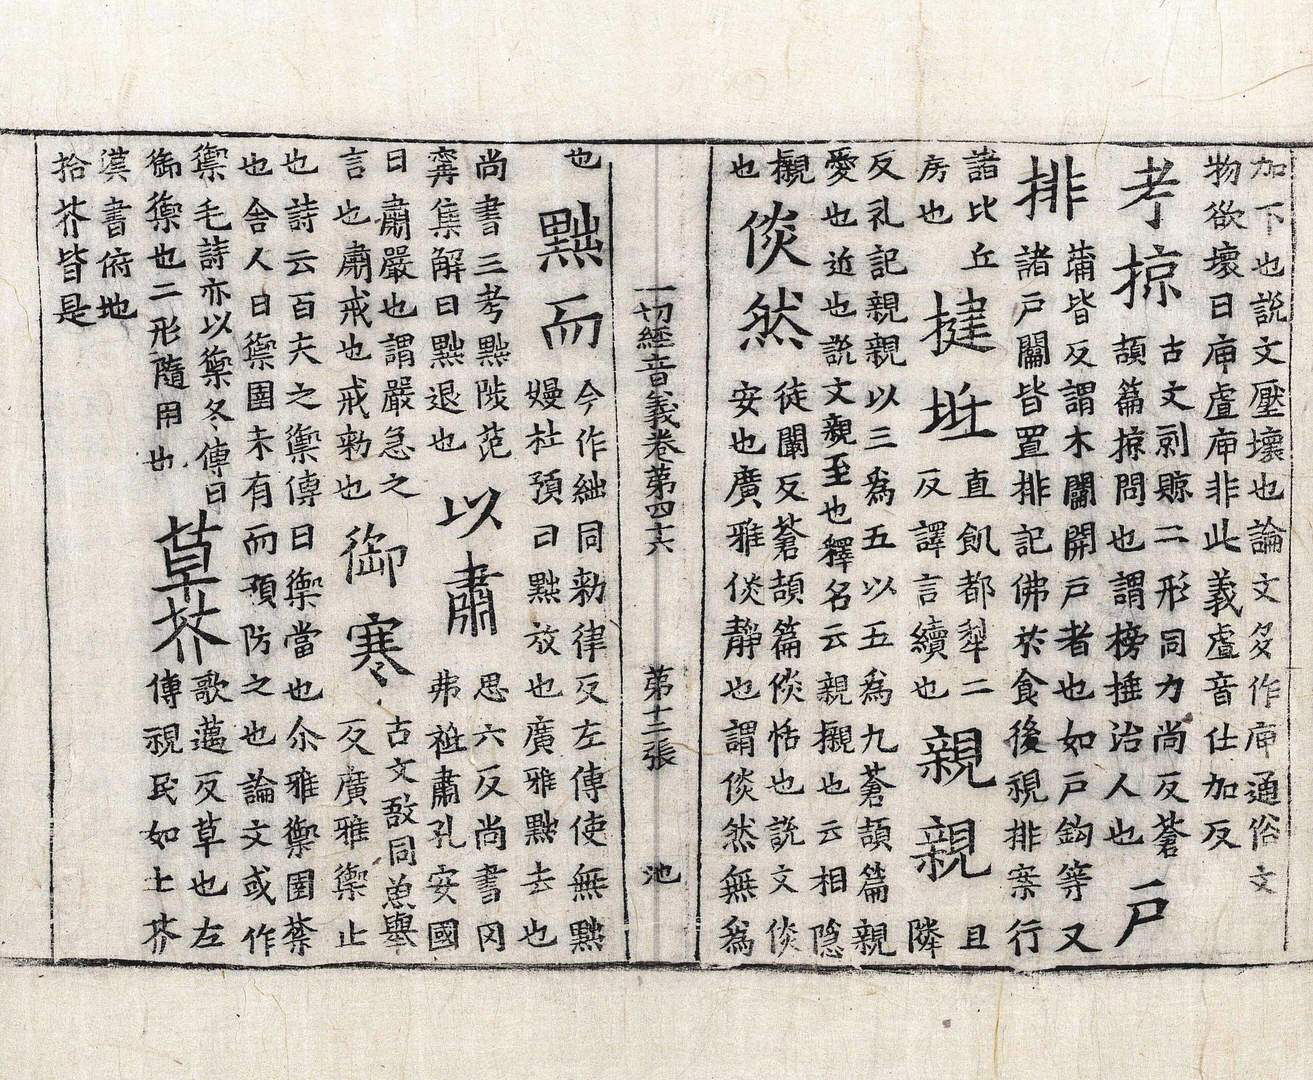 加下也說文壓壞也論文多作庌通俗文
物欲壞曰庌廬庌非此義廬音仕加反
考掠
古文剠䝶二形同力尚反蒼
頡篇掠問也謂榜捶治人也
戶
排
莆皆反謂木闔開戶者也如戶鈎等又
諸戶闔皆置排記佛於食後視排案行
諸比丘
房也
揵坁
直飢都犁二
反譯言續也
親親
且
隣
反礼記親親以三為五以五為九蒼頡篇親
愛也近也說文親至也釋名云親襯也云相隱
襯
也
倓然
徒闞反蒼頡篇倓恬也說文倓
安也廣雅倓靜也謂倓然無為
一切經音義卷第四十六 第十二張 池
也
黜而
今作絀同勑律反左傳使無黜
嫚杜預曰黜放也廣雅黜去也
尚書三考黜陟范
甯集解曰黜退也
以肅
思六反尚書冈
弗祗肅孔安國
曰肅嚴也謂嚴急之
言也肅戒也戒勑也
御寒
古文敔同魚舉
反廣雅禦止
也詩云百夫之禦傳曰禦當也尒雅禦圉禁
也舍人曰禦圉未有而預防之也論文或作
禦毛詩亦以禦冬傳曰
御禦也二形隨用也
草芥
歌邁反草也左
傳視民如土芥
漢書俯地
拾芥皆是